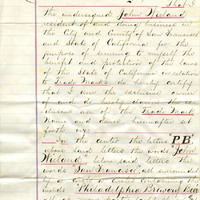 That I
the undersigned John Wieland
resident of and doing business in
the City and County of San Francisco
and State of California for the
purpose of securing to myself the
benefit and protection of the laws
of the State of California in relation
to Trade Marks do hereby certify
that I am the exclusive owner
of and do
use of the Trade Mark
Name and device hereinafter set
forth viz:
In the center the letters "P.B."
above said letters the words "John
Wieland", below said letters the
words San Francisco, all surrounded
words "Philadelphia Brewery Beer